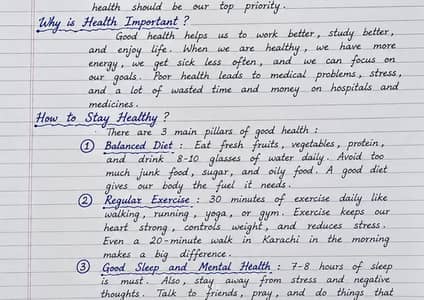 health should be our top priority.
Why is Health Important ?
Good health helps us to work better, study better,
and enjoy life. When we are healthy, we have more
energy, we get sick less often, and we can focus on
our goals. Poor health leads to medical problems, stress,
and a lot of wasted time and money on hospitals and
medicines.
How to Stay Healthy ?
There are 3 main pillars of good health :
1 Balanced Diet : Eat fresh fruits, vegetables, protein,
and drink 8-10 glasses of water daily. Avoid too
much junk food, sugar, and oily food. A good diet
gives our body the fuel it needs.
2 Regular Exercise : 30 minutes of exercise daily like
walking, running, yoga, or gym. Exercise keeps our
heart strong, controls weight, and reduces stress.
Even a 20-minute walk in Karachi in the morning
makes a big difference.
3 Good Sleep and Mental Health : 7-8 hours of sleep
is must. Also, stay away from stress and negative
thoughts. Talk to friends, pray, and do things that